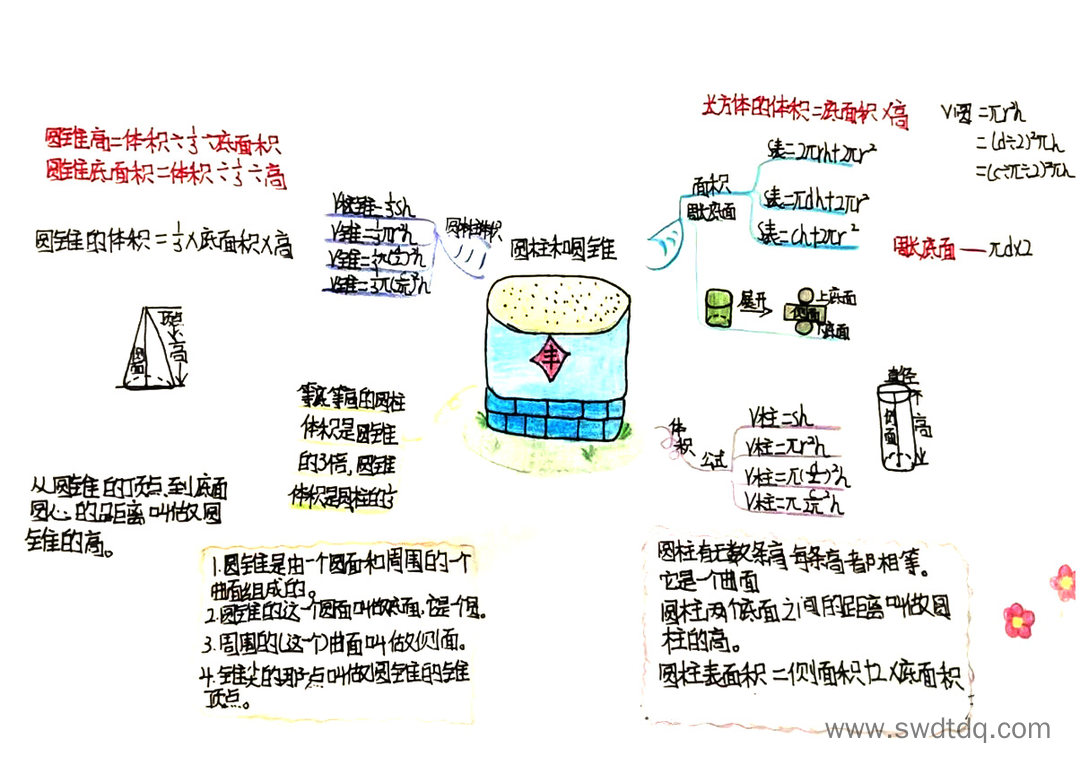 圆柱和圆锥
圆锥高=体积÷⅓÷底面积
圆锥底面积=体积÷⅓÷高
圆锥的体积=⅓×底面积×高
V锥=⅓sh
V锥=⅓πr²h
顶点
高
侧面
等底等高的圆柱
体积是圆锥
的3倍,圆锥
体积是圆柱的⅓
从圆锥的顶点到底面
圆心的距离叫做圆
锥的高。
1.圆锥是由一个圆面和周围的一个
曲面组成的。
2.圆锥的这一个圆面叫做底面,它是个圆。
3.周围的(这个)曲面叫做侧面。
4.锥尖的那点叫做圆锥的锥
顶点。
长方体的体积=底面积×高
V圆=πr²h
=(d÷2)²πh
=(c÷π÷2)²πh
面积
周长底面
S表=2πrh+2πr²
S表=πdh+2πr²
S表=ch+2πr²
周长底面——πd×2
展开
上底面
侧面
下底面
直径
侧面
高
体积
公式
V柱=sh
V柱=πr²h
V柱=π(d/2)²h
圆柱有无数条高每条高都相等。
它是一个曲面
圆柱两个底面之间的距离叫做圆
柱的高。
圆柱表面积=侧面积+2×底面积
www.swdtdq.com